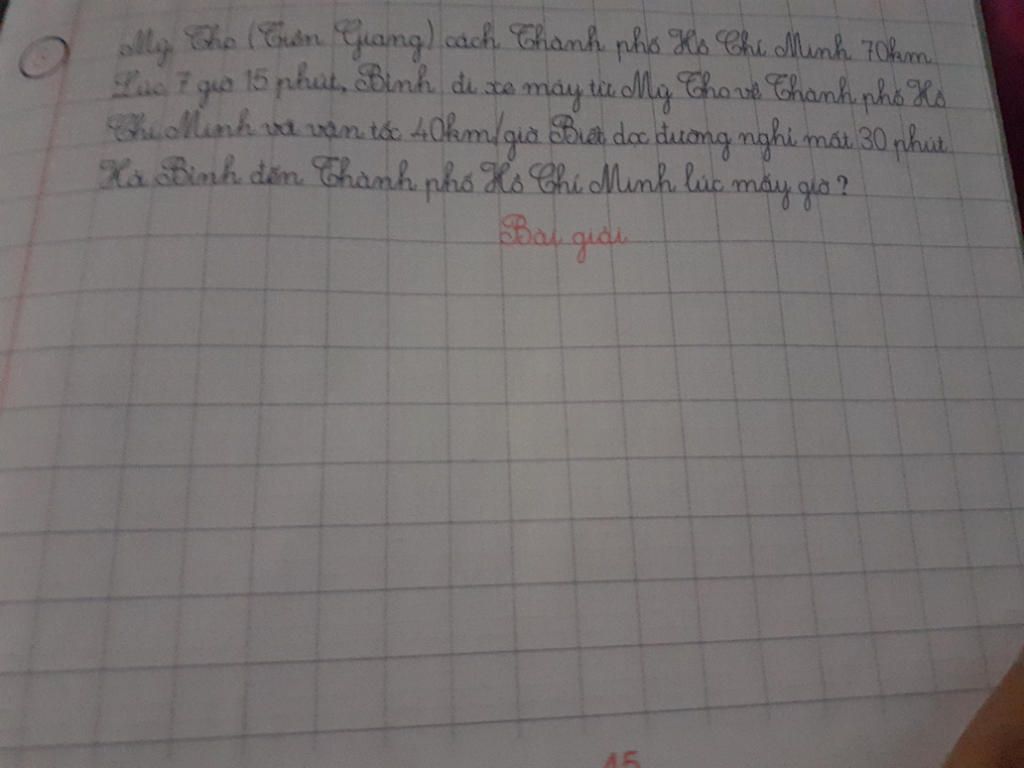 Mỹ Tho (Tiền Giang) cách Thành phố Hồ Chí Minh 70km.
Lúc 7 giờ 15 phút, Bình đi xe máy từ Mỹ Tho về Thành phố Hồ
Chí Minh với vận tốc 40km/giờ. Biết dọc đường nghỉ mất 30 phút.
Hỏi Bình đến Thành phố Hồ Chí Minh lúc mấy giờ?
Bài giải
45